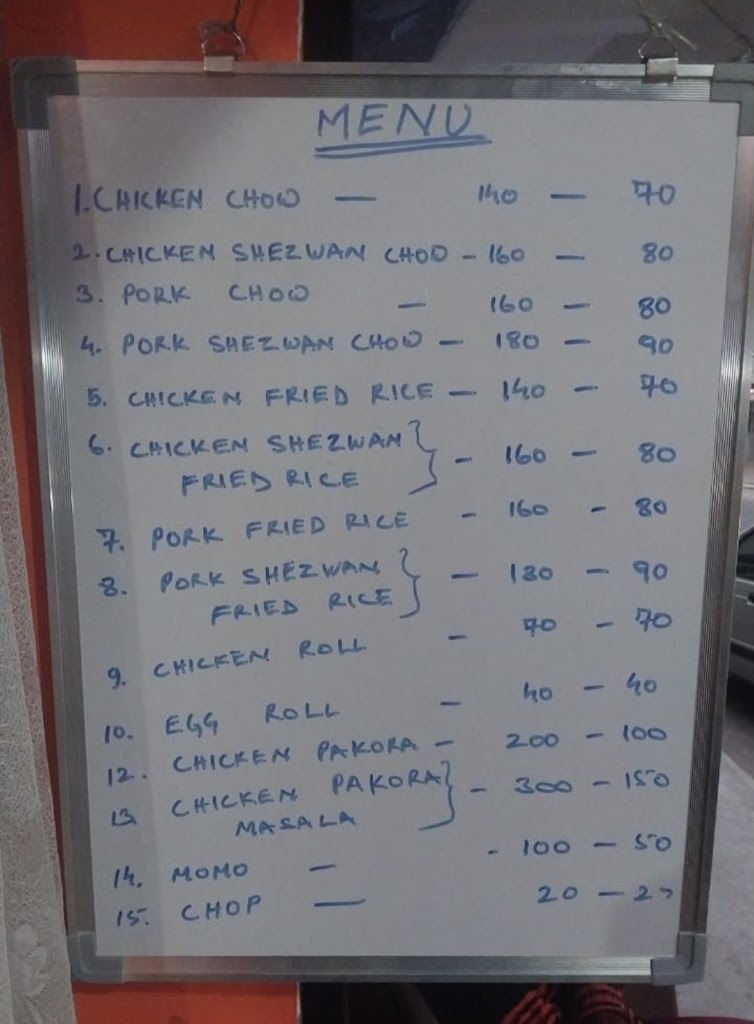 MENU
1. CHICKEN CHOW — 140 — 70
2. CHICKEN SHEZWAN CHOW - 160 — 80
3. PORK CHOW — 160 — 80
4. PORK SHEZWAN CHOW — 180 — 90
5. CHICKEN FRIED RICE — 140 — 70
6. CHICKEN SHEZWAN
FRIED RICE } - 160 — 80
7. PORK FRIED RICE - 160 - 80
8. PORK SHEZWAN
FRIED RICE } — 180 — 90
9. CHICKEN ROLL - 70 - 70
10. EGG ROLL — 40 — 40
12. CHICKEN PAKORA — 200 — 100
13 CHICKEN PAKORA
MASALA } - 300 — 150
14. MOMO — - 100 — 50
15. CHOP — 20 — 20